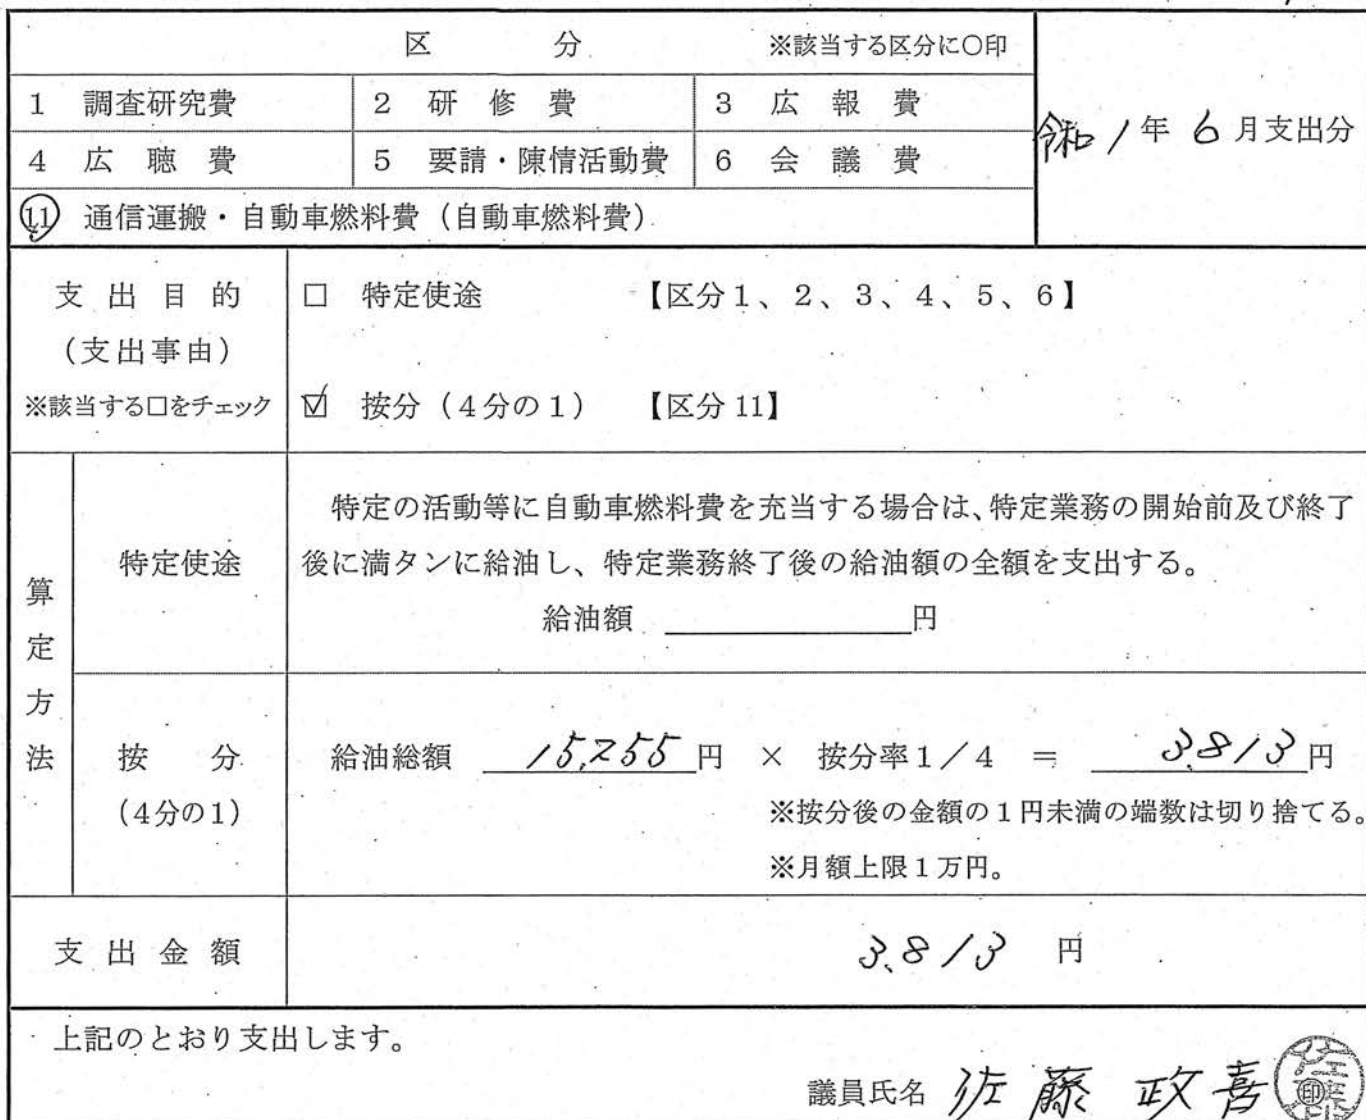 区　　　分　　※該当する区分に○印
1　調査研究費
2　研　修　費
3　広　報　費
令和1年 6月支出分
4　広　聴　費
5　要請・陳情活動費
6　会　議　費
11　通信運搬・自動車燃料費（自動車燃料費）
支 出 目 的
（支出事由）
※該当する□をチェック
□　特定使途　　【区分1、2、3、4、5、6】
☑　按分（4分の1）　【区分11】
算定方法
特定使途
特定の活動等に自動車燃料費を充当する場合は、特定業務の開始前及び終了
後に満タンに給油し、特定業務終了後の給油額の全額を支出する。
給油額　　　　　円
按　　分
（4分の1）
給油総額　15,255円　×　按分率1／4　＝　3,813円
※按分後の金額の1円未満の端数は切り捨てる。
※月額上限1万円。
支 出 金 額
3,813　円
上記のとおり支出します。
議員氏名　佐藤　政喜　㊞